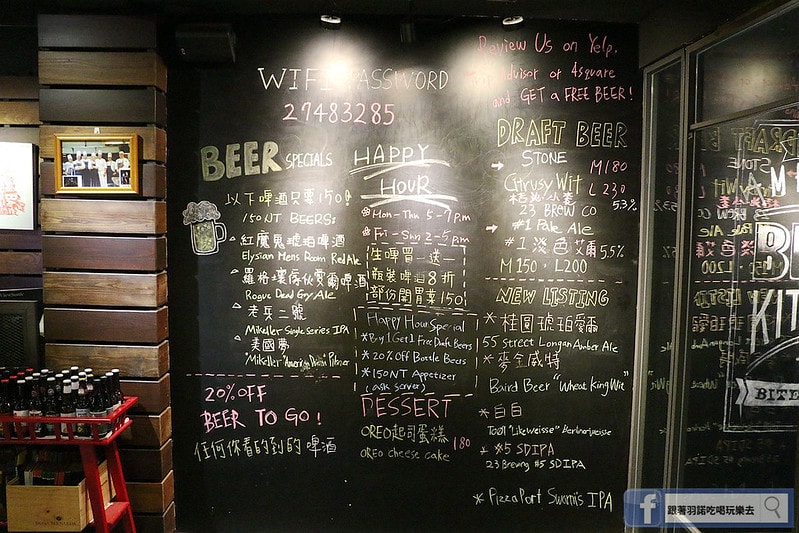 Review Us on Yelp.
Tripadvisor or 4square
and GET a FREE BEER!
WIFI PASSWORD
27483285
BEER SPECIALS
以下啤酒只要150!
150NT BEERS:
紅魔鬼琥珀啤酒
Elysian Mens Room Red Ale
Rogue Dead Guy Ale
老兵二號
Mikeller Single Series IPA
美國夢
"Mikeller "American Dream" Pilsner
20% OFF
BEER TO GO!
任何你看的到的啤酒
HAPPY
HOUR
Mon-Thu 5-7p.m
Fri-Sun 2-5p.m
生啤買一送一
瓶裝啤酒8折
部份開胃菜150
Happy Hour Special
*Buy 1 Get 1 Free Draft Beers
*20% Off Bottle Beers
*150NT Appetizer
(ask server)
DESSERT
OREO起司蛋糕 180
OREO cheese cake
DRAFT BEER
→ STONE M180
Citrusy Wit L230
23 BREW CO 5.3%
→ #1 Pale Ale
#1 淡色艾爾 5.5%
M150 · L200
NEW LISTING
*桂圓琥珀愛爾
55 Street Longan Ale Amber Ale
*麥金威特
Baird Beer "Wheat King Wit"
*白白
"Likeweisse" Berlinerweisse
*#5 SDIPA
23 Brewing #5 SDIPA
*Pizza Port Swami's IPA
BITE
跟著羽諾吃喝玩樂去